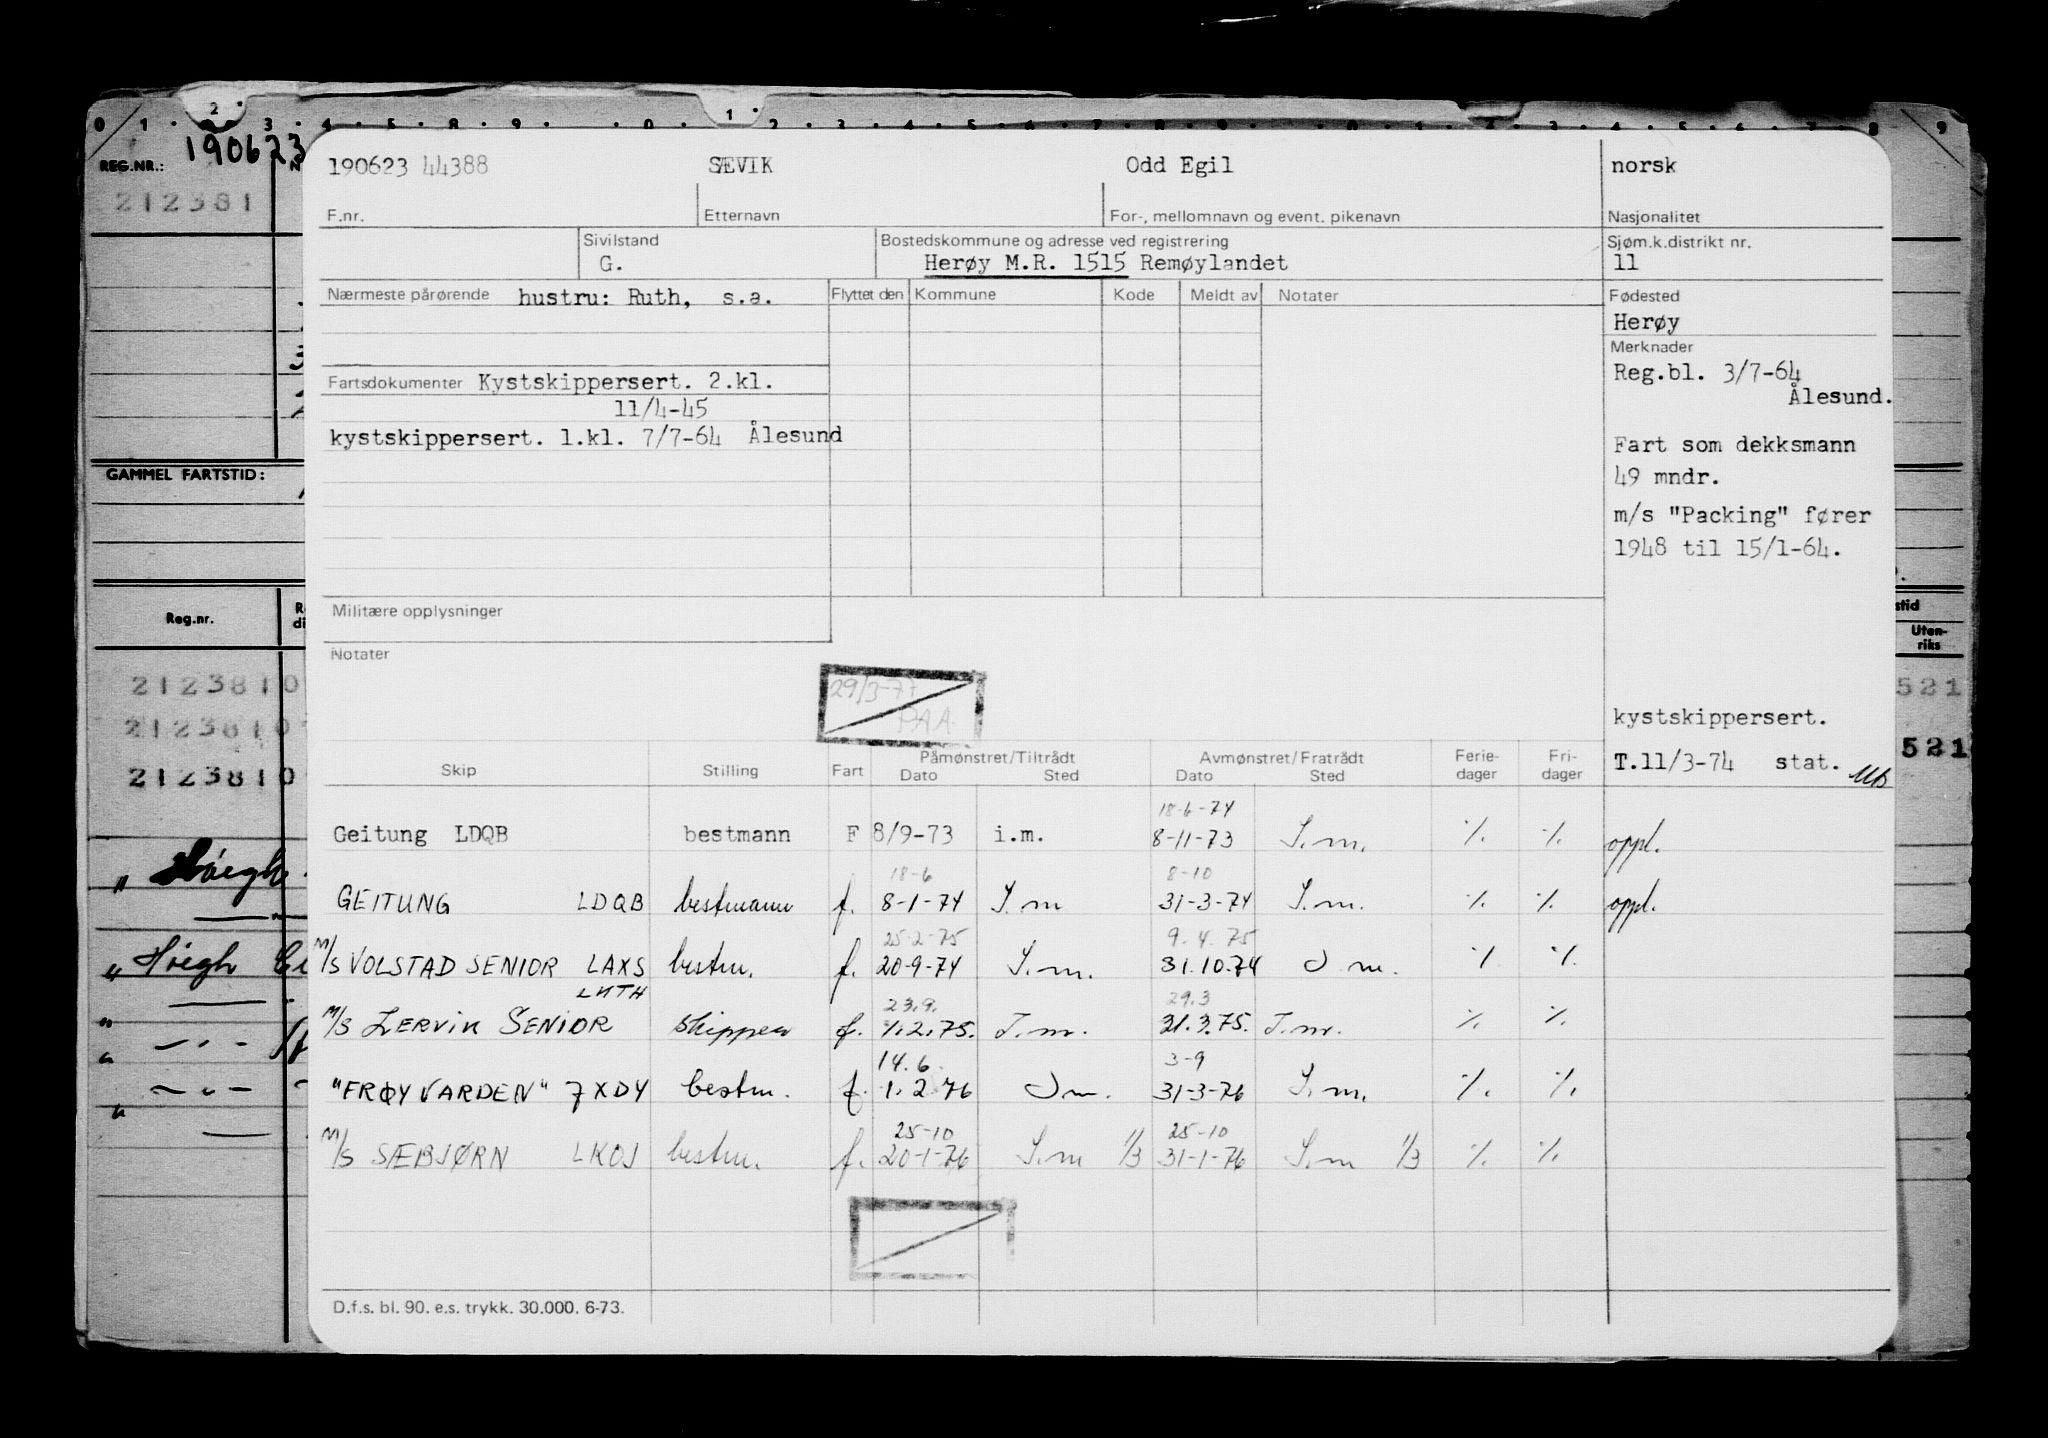 0 1 2 3 4 5 8 9 0 1 2 3 4 5 6 7 8 9 0 1 2 3 4 5 6 7 8 9
REG.NR.: 190623
212381
190623 44388 SÆVIK Odd Egil norsk
F.nr. Etternavn For-, mellomnavn og event. pikenavn Nasjonalitet
Sivilstand Bostedskommune og adresse ved registrering Sjøm.k.distrikt nr.
G. Herøy M.R. 1515 Remøylandet 11
Nærmeste pårørende hustru: Ruth, s.a. Flyttet den Kommune Kode Meldt av Notater Fødested
Herøy
Merknader
Reg.bl. 3/7-64
Ålesund.
Fartsdokumenter Kystskippersert. 2.kl.
11/4-45
kystskippersert. 1.kl. 7/7-64 Ålesund
Fart som dekksmann
49 mndr.
m/s "Packing" fører
1948 til 15/1-64.
GAMMEL FARTSTID:
Reg.nr.
Militære opplysninger
Notater
Uten-
riks
2123810
2123810
2123810
521
521
29/3-77
PAA
kystskippersert.
T.11/3-74 stat.
Skip Stilling Fart Påmønstret/Tiltrådt Avmønstret/Fratrådt Ferie-dager Fri-dager
Dato Sted Dato Sted
18-6-74
Geitung LDQB bestmann F 8/9-73 i.m. 8-11-73 I.m. % % oppl.
18-6 8-10
GEITUNG LDQB bestmann f. 8-1-74 I.m 31-3-74 I.m. % % oppl.
25-2-75 9.4.75
M/S VOLSTAD SENIOR LAXS bestm. f. 20-9-74 I.m. 31.10.74 I m. % %
LNTH 23.9. 29.3
M/S LERVIK SENIOR skipper f. 1.2.75. I.m. 31.3.75. I.m. % %
14.6. 3-9
"FRØYVARDEN" 7XDY bestm. f. 1.2.76 I m. 31-3-76 I.m. % %
25-10 25-10
M/S SÆBJØRN LKOJ bestm. f. 20-1-76 I.m 1/3 31-1-76 I.m 1/3 % %
" Höegh
D.f.s. bl. 90. e.s. trykk. 30.000. 6-73.